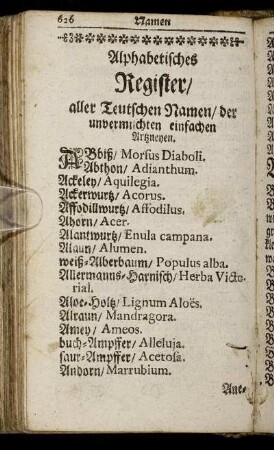 626 Namen
Alphabetisches
Register/
aller Teutschen Namen/ der
unvermischten einfachen
Artzneyen.
ABbiß/ Morsus Diaboli.
Abthon/ Adianthum.
Ackeley/ Aquilegia.
Ackerwurtz/ Acorus.
Affodillwurtz/ Affodilus.
Ahorn/ Acer.
Alantwurtz/ Enula campana.
Alaun/ Alumen.
weiß-Alberbaum/ Populus alba.
Allermanns-Harnisch/ Herba Victo-
rial.
Aloe-Holtz/ Lignum Aloës.
Alraun/ Mandragora.
Amey/ Ameos.
buch-Ampffer/ Alleluja.
saur-Ampffer/ Acetosa.
Andorn/ Marrubium.
Ane-